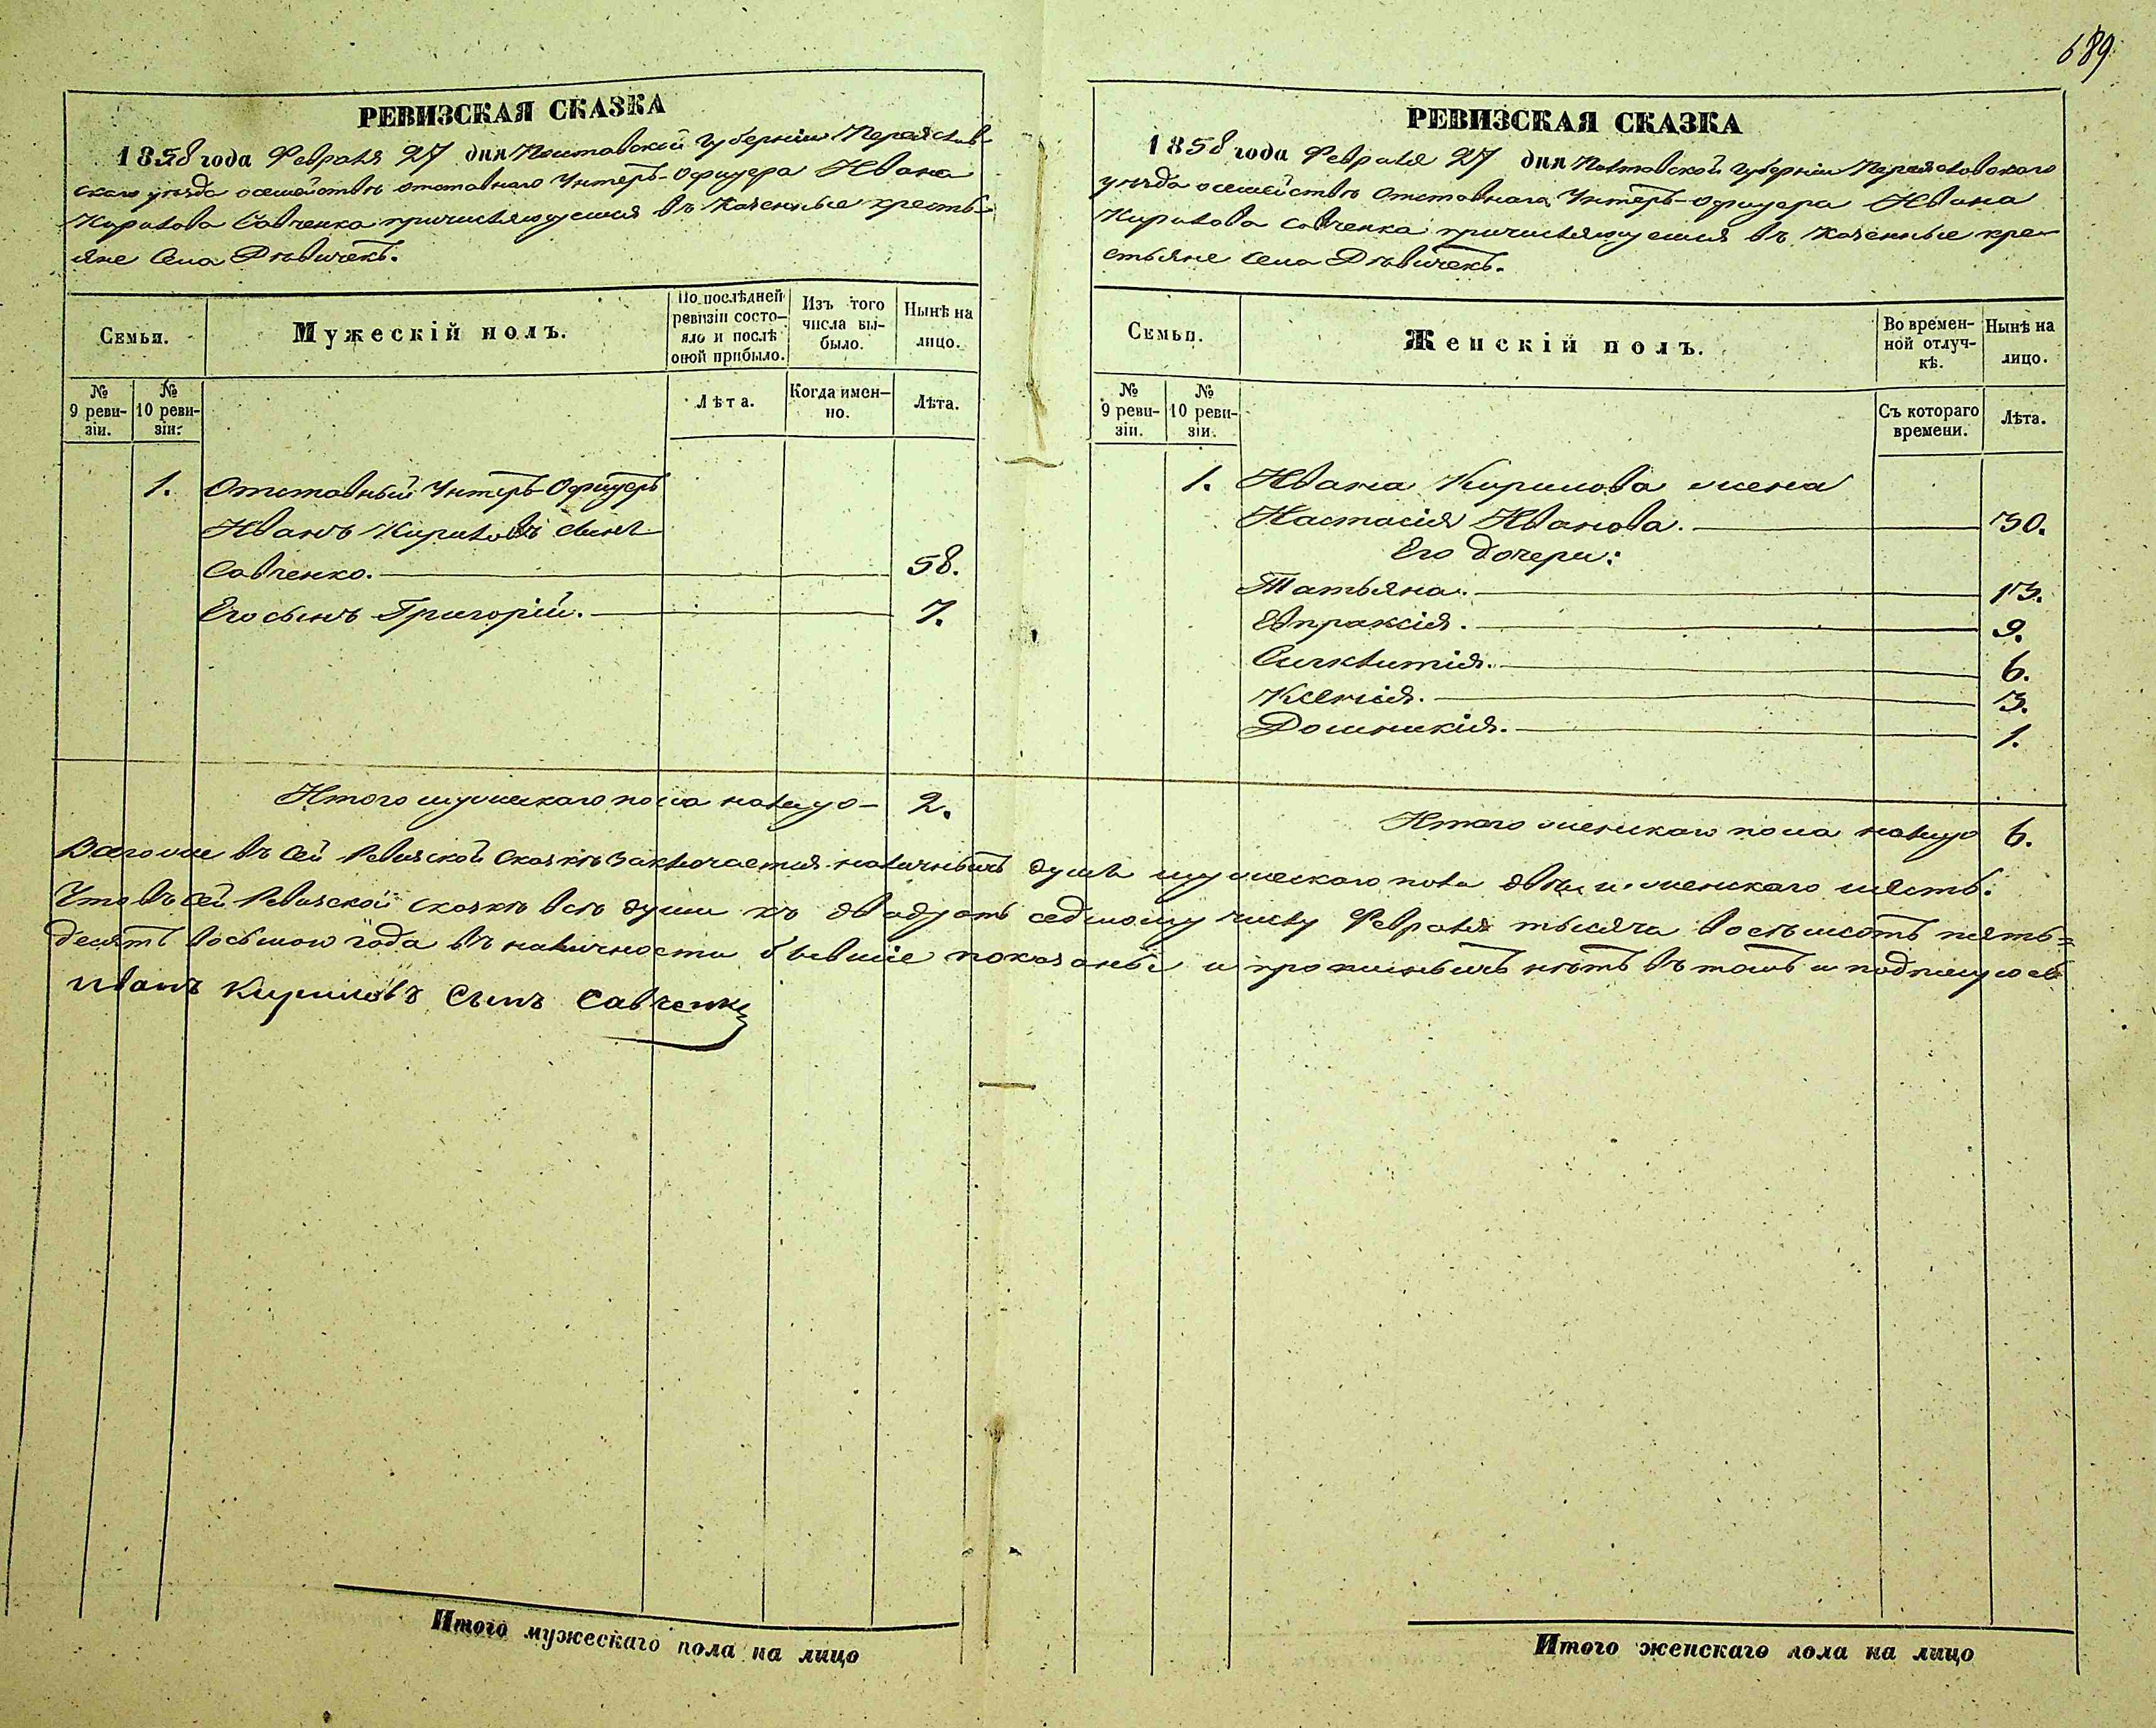 689
РЕВИЗСКАЯ СКАЗКА
1858 года Февраля 27 дня Полтавской Губерніи Переяслав-
скаго уѣзда о семействѣ отставнаго Унтеръ-Офицера Ивана
Кирилова Савченка причисляющемся въ Казенные кресть-
яне Села Дѣвичекъ.
Семьи.
Мужескій полъ.
По послѣдней ревизіи состо-яло и послѣ оной прибыло.
Изъ того числа вы-было.
Нынѣ на лицо.
№ 9 реви-зіи.
№ 10 реви-зіи.
Лѣта.
Когда имен-но.
Лѣта.
1. Отставный Унтеръ-Офицеръ
Иванъ Кириловъ сынъ
Савченко. 58.
Его сынъ Григорій. 7.
Итого мужескаго пола налицо — 2.
РЕВИЗСКАЯ СКАЗКА
1858 года Февраля 27 дня Полтавской Губерніи Переяславскаго
уѣзда о семействѣ Отставнаго Унтеръ-Офицера Ивана
Кирилова Савченка причисляющемся въ Казенные кре-
стьяне Села Дѣвичекъ.
Семьи.
Женскій полъ.
Во времен-ной отлуч-кѣ.
Нынѣ на лицо.
№ 9 реви-зіи.
№ 10 реви-зіи.
Съ котораго времени.
Лѣта.
1. Ивана Кирилова жена
Настасія Иванова. 30.
Его дочери:
Татьяна. 13.
Евпраксія. 9.
Синклитія. 6.
Ксенія. 3.
Домникія. 1.
Итого женскаго пола налицо 6.
Всего же въ сей Ревизской Сказкѣ заключается наличныхъ душъ мужескаго пола двѣ и женскаго шесть.
Что въ сей Ревизской сказкѣ всѣ души къ двадцать седьмому числу Февраля тысяча восемьсотъ пять=
десятъ восьмого года въ наличности бывшіе показаны и прописныхъ нѣтъ въ томъ и подписуюсь
Иванъ Кириловъ Сынъ Савченко
Итого мужескаго пола на лицо
Итого женскаго пола на лицо